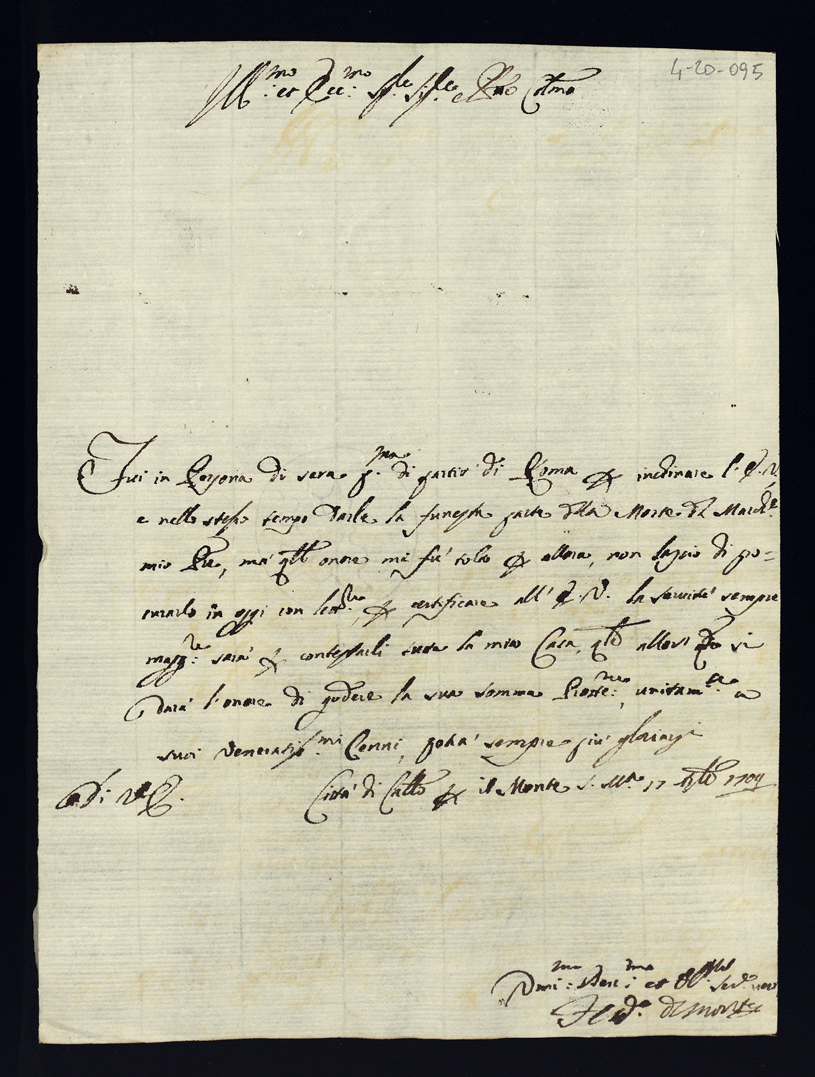 4-20-095
Ill:mo et Ecc:mo Sig.re Sig.re e Pne Colmo
Fui in Persona di sera p.ma di partir di Roma inclinare l'E.V.
e nello stesso tempo darle la funesta parte della Morte del March.e
mio Pre, ma qll onore mi fu tolto allora, non lascio di po=
curarlo in oggi con lett.ra, certificare all' E.V. la servitù sempre
magg:re sarà contestarli tutta la mia Casa, allor si
darà l'onore di godere la sua somma Prott:ne, unitam.te a
suoi veneratiss.mi Cenni, potrà sempre più gloriarsi
Città di Castello il Monte S. M.a 17 1709
Di V.E.
Dmi:mo Dev:mo et Obl. Ser.e vero
Fed.o del Monte